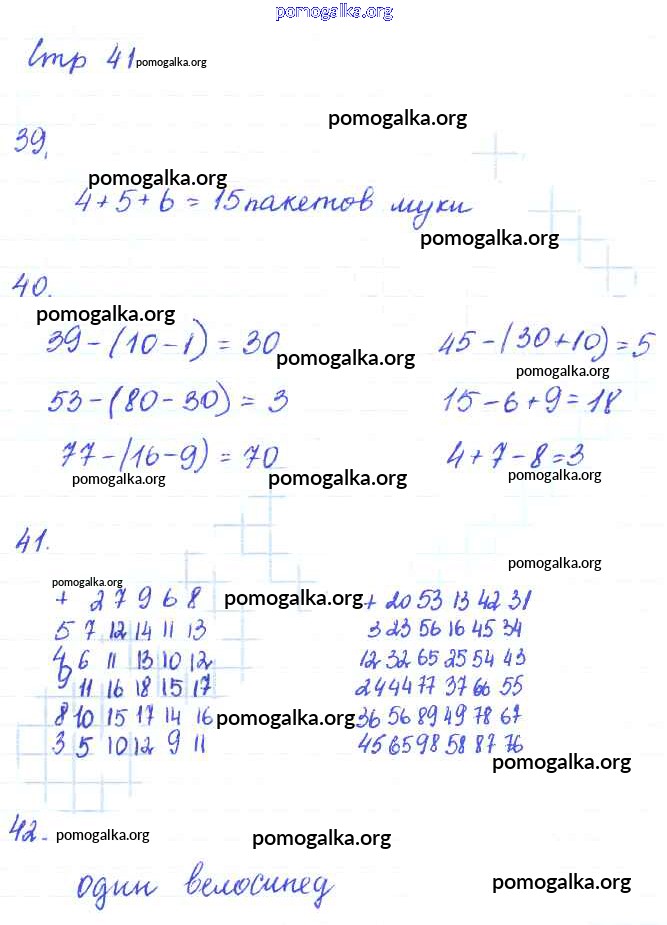 pomogalka.org
Стр 41 pomogalka.org
pomogalka.org
39.
pomogalka.org
4+5+6 = 15 пакетов муки
pomogalka.org
40.
pomogalka.org
39-(10-1) = 30 45-(30+10)=5
pomogalka.org pomogalka.org
53-(80-30) = 3 15-6+9=18
77-(16-9) = 70 4+7-8=3
pomogalka.org pomogalka.org pomogalka.org
41.
pomogalka.org
pomogalka.org
+ 2 7 9 6 8 pomogalka.org + 20 53 13 42 31
5 7 12 14 11 13 3 23 56 16 45 34
4 6 11 13 10 12 12 32 65 25 54 43
9 11 16 18 15 17 24 44 77 37 66 55
8 10 15 17 14 16 pomogalka.org 36 56 89 49 78 67
3 5 10 12 9 11 45 65 98 58 87 76
pomogalka.org
42. pomogalka.org pomogalka.org
один велосипед
pomogalka.org